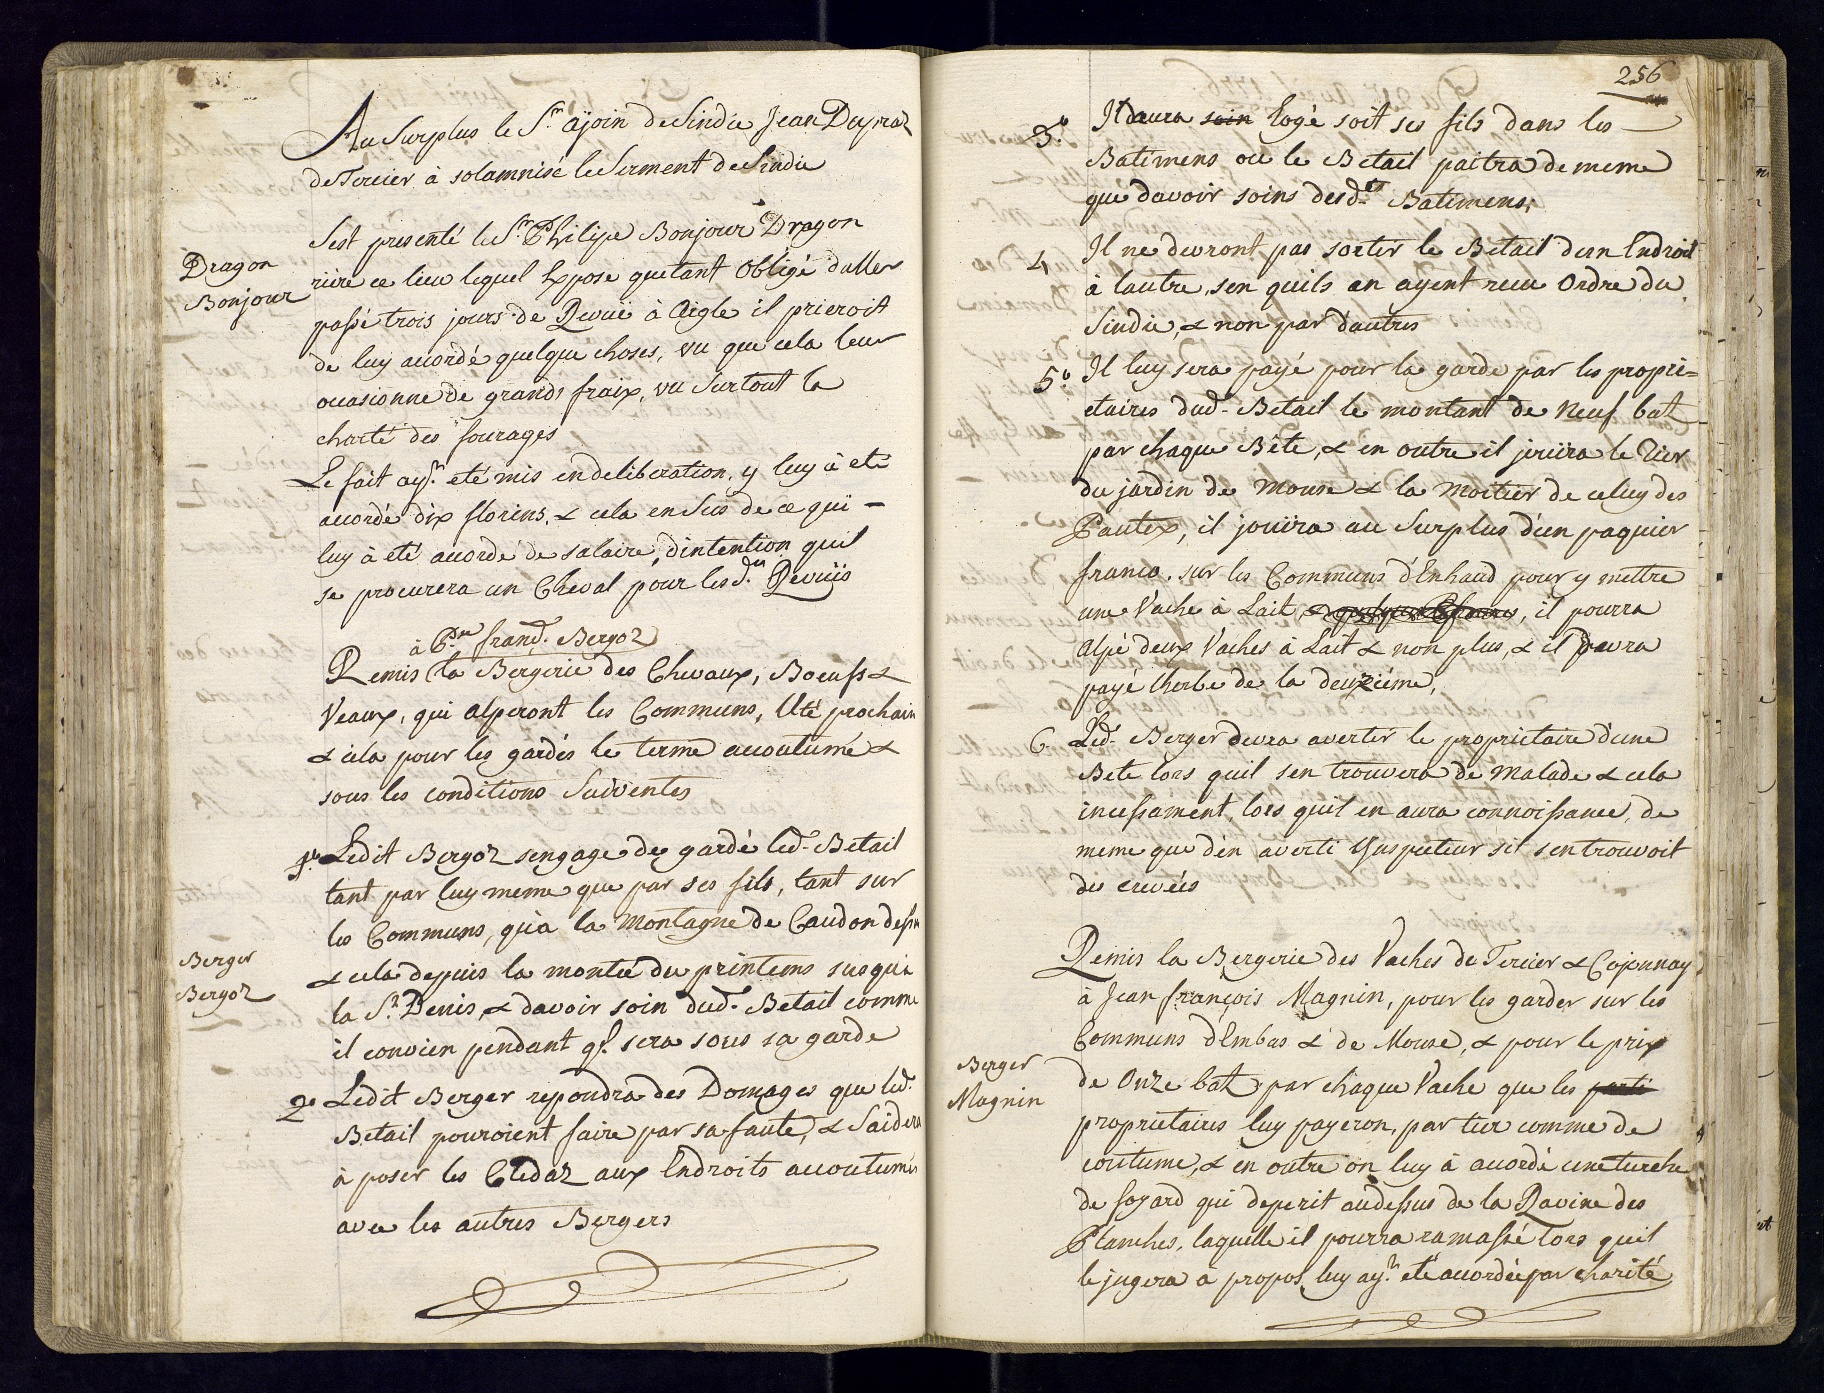 Au Surplus le Sr. ajoin de Sindic Jean Dupraz
de Tercier à solamnisé le Serment de Sindic
Dragon
Bonjour
Sest presenté le Sr. Philipe Bonjour Dragon
riere ce lieu lequel Expose quetant Obligé daller
passé trois jours de Revuë à Aigle il prieroit
de luy acordé quelque choses, vu que cela leur
ocasionne de grands fraix, vu Surtout la
charté des fourages
Le fait ayt. eté mis en deliberation, y luy à eté
acordé dix florins, & cela en Sus de ce qui –
luy à eté acordé de salaire, dintention quil
se procurera un Cheval pour lesd.tes Revuës
à Pre. frand. Bergoz
Remis la Bergerie des Chevaux, Boeufs &
Veaux, qui alperont les Communs, lété prochain
& cela pour les gardés le terme acoutumé &
sous les conditions Suiventes
1o. Ledit Bergoz sengage de gardé led. Betail
tant par luy meme que par ses fils, tant sur
les Communs, qu'a la Montagne de Caudon dessu
Berger
Bergoz
& cela depuis la montée du printems jusqu'a
la St. Denis, & davoir soin dud. Betail comme
il convien pendant ql. sera sous sa garde
2o Ledit Berger repondra des Domages que led.
Betail pouroient faire par sa faute, & Saidera
à poser les Cledaz aux Endroits acoutumés
avec les autres Bergers
256
3o. Il daura soin logé soit ses fils dans les –
Batimens ou le Betail paitra de meme
que davoir soins desd.ts Batimens,
4 Il ne devront pas sortir le Betail d'un Endroit
à lautre, sen quils en ayent recu Ordre du
Sindic, & non par d'autres
5o Il luy sera payé pour la garde par les propri=
etaires dud. Betail le montant de Neuf batz
par chaque Bête, & en outre il jouira le Tier
du jardin de Mouse & la moitier de celuy des
Pautex, il jouira au Surplus d'un paquier
franco. sur les Communs d'Enhaud pour y mettre
une Vache à Lait, & quelques, il pourra
alpé deux Vaches à Lait & non plus, & il devra
payé lherbe de la deuxiéme,
6 Led. Berger devra averter le proprietaire d'une
Bete lors quil sen trouvera de Malade & cela
incessament, lors quil en aura connoissance, de
meme que d'en averti lInspecteur sil sen trouvoit
des crevées
Remis la Bergerie des Vaches de Tercier & Cojonnay
à Jean françois Magnin, pour les garder sur les
Communs d'Embas & de Mouse, & pour le prix
Berger
Magnin
de Onze batz par chaque Vache que les parti
proprietaires luy payeron, par tier comme de
coutume, & en outre on luy à acordé une turche
de foyard qui deperit audessus de la Ravine des
Planches, laquelle il pourra ramassé lors quil
le jugera a propos, luy ayt. eté acordée par charité